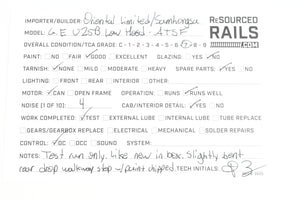 IMPORTER/BUILDER: Oriental Limited/Samhongsa
MODEL: G.E U25B Low Hood - ATSF
OVERALL CONDITION/TCA GRADE: C - 1 - 2 - 3 - 4 - 5 - 6 - 7 - 8 - 9
PAINT: NO FAIR GOOD EXCELLENT GLAZING: YES NO
TARNISH: NONE MILD MODERATE HEAVY SPARE PARTS: YES NO
LIGHTING: FRONT REAR INTERIOR OTHER:
MOTOR: CAN OPEN FRAME OPERATION: RUNS RUNS WELL
NOISE (1 OF 10): 4 CAB/INTERIOR DETAIL: YES NO
WORK COMPLETED: TEST EXTERNAL LUBE INTERNAL LUBE TUBE REPLACE
GEARS/GEARBOX REPLACE ELECTRICAL MECHANICAL SOLDER REPAIRS
CONTROL: DC DCC SOUND SYSTEM:
NOTES: Test run only. Like new in box. Slightly bent
rear drop walkway step w/paint chipped. TECH INITIALS:
RESOURCED
RAILS
.COM